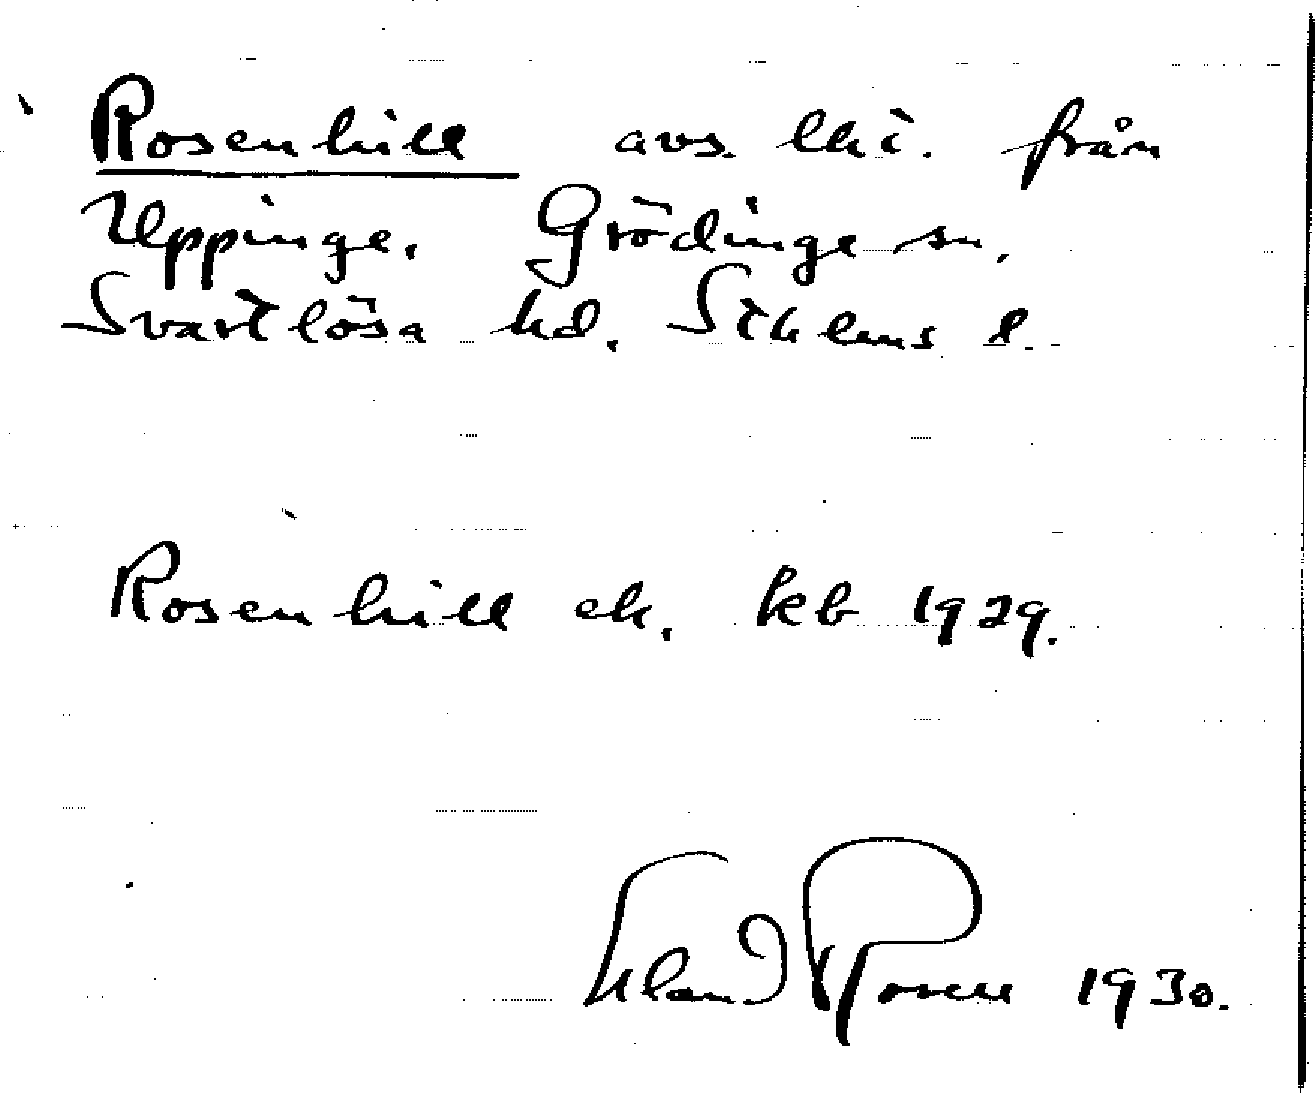 Rosenhill avs. lht. från
Uppinge. Grödinge sn.
Svartlösa hd. Sthlms l.
Rosenhill ek. kb 1929.
1930.